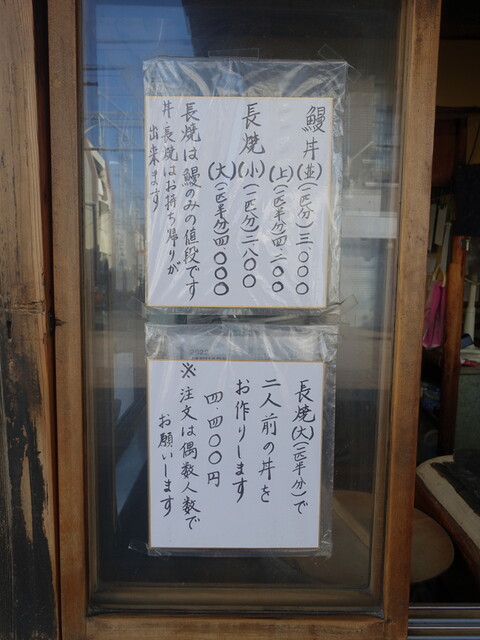 鰻丼(並)(一匹分)三、〇〇〇
(上)(一匹半分)四、二〇〇
長焼(小)(一匹分)二、八〇〇
(大)(一匹半分)四、〇〇〇
長焼は鰻のみの値段です
丼・長焼はお持ち帰りが
出来ます
長焼(大)(一匹半分)で
二人前の丼を
お作りします
四、四〇〇円
※注文は偶数人数で
お願いします